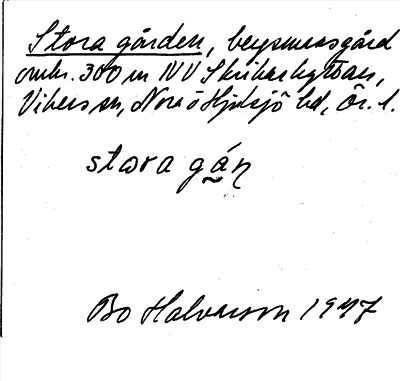 Stora gården, bergsmansgård
omkr. 300 m NV Skrikarhyttan,
Vikers sn, Nora o Hjulsjö bd, Ör. l.
stora gán
Bo Halvarson 1947